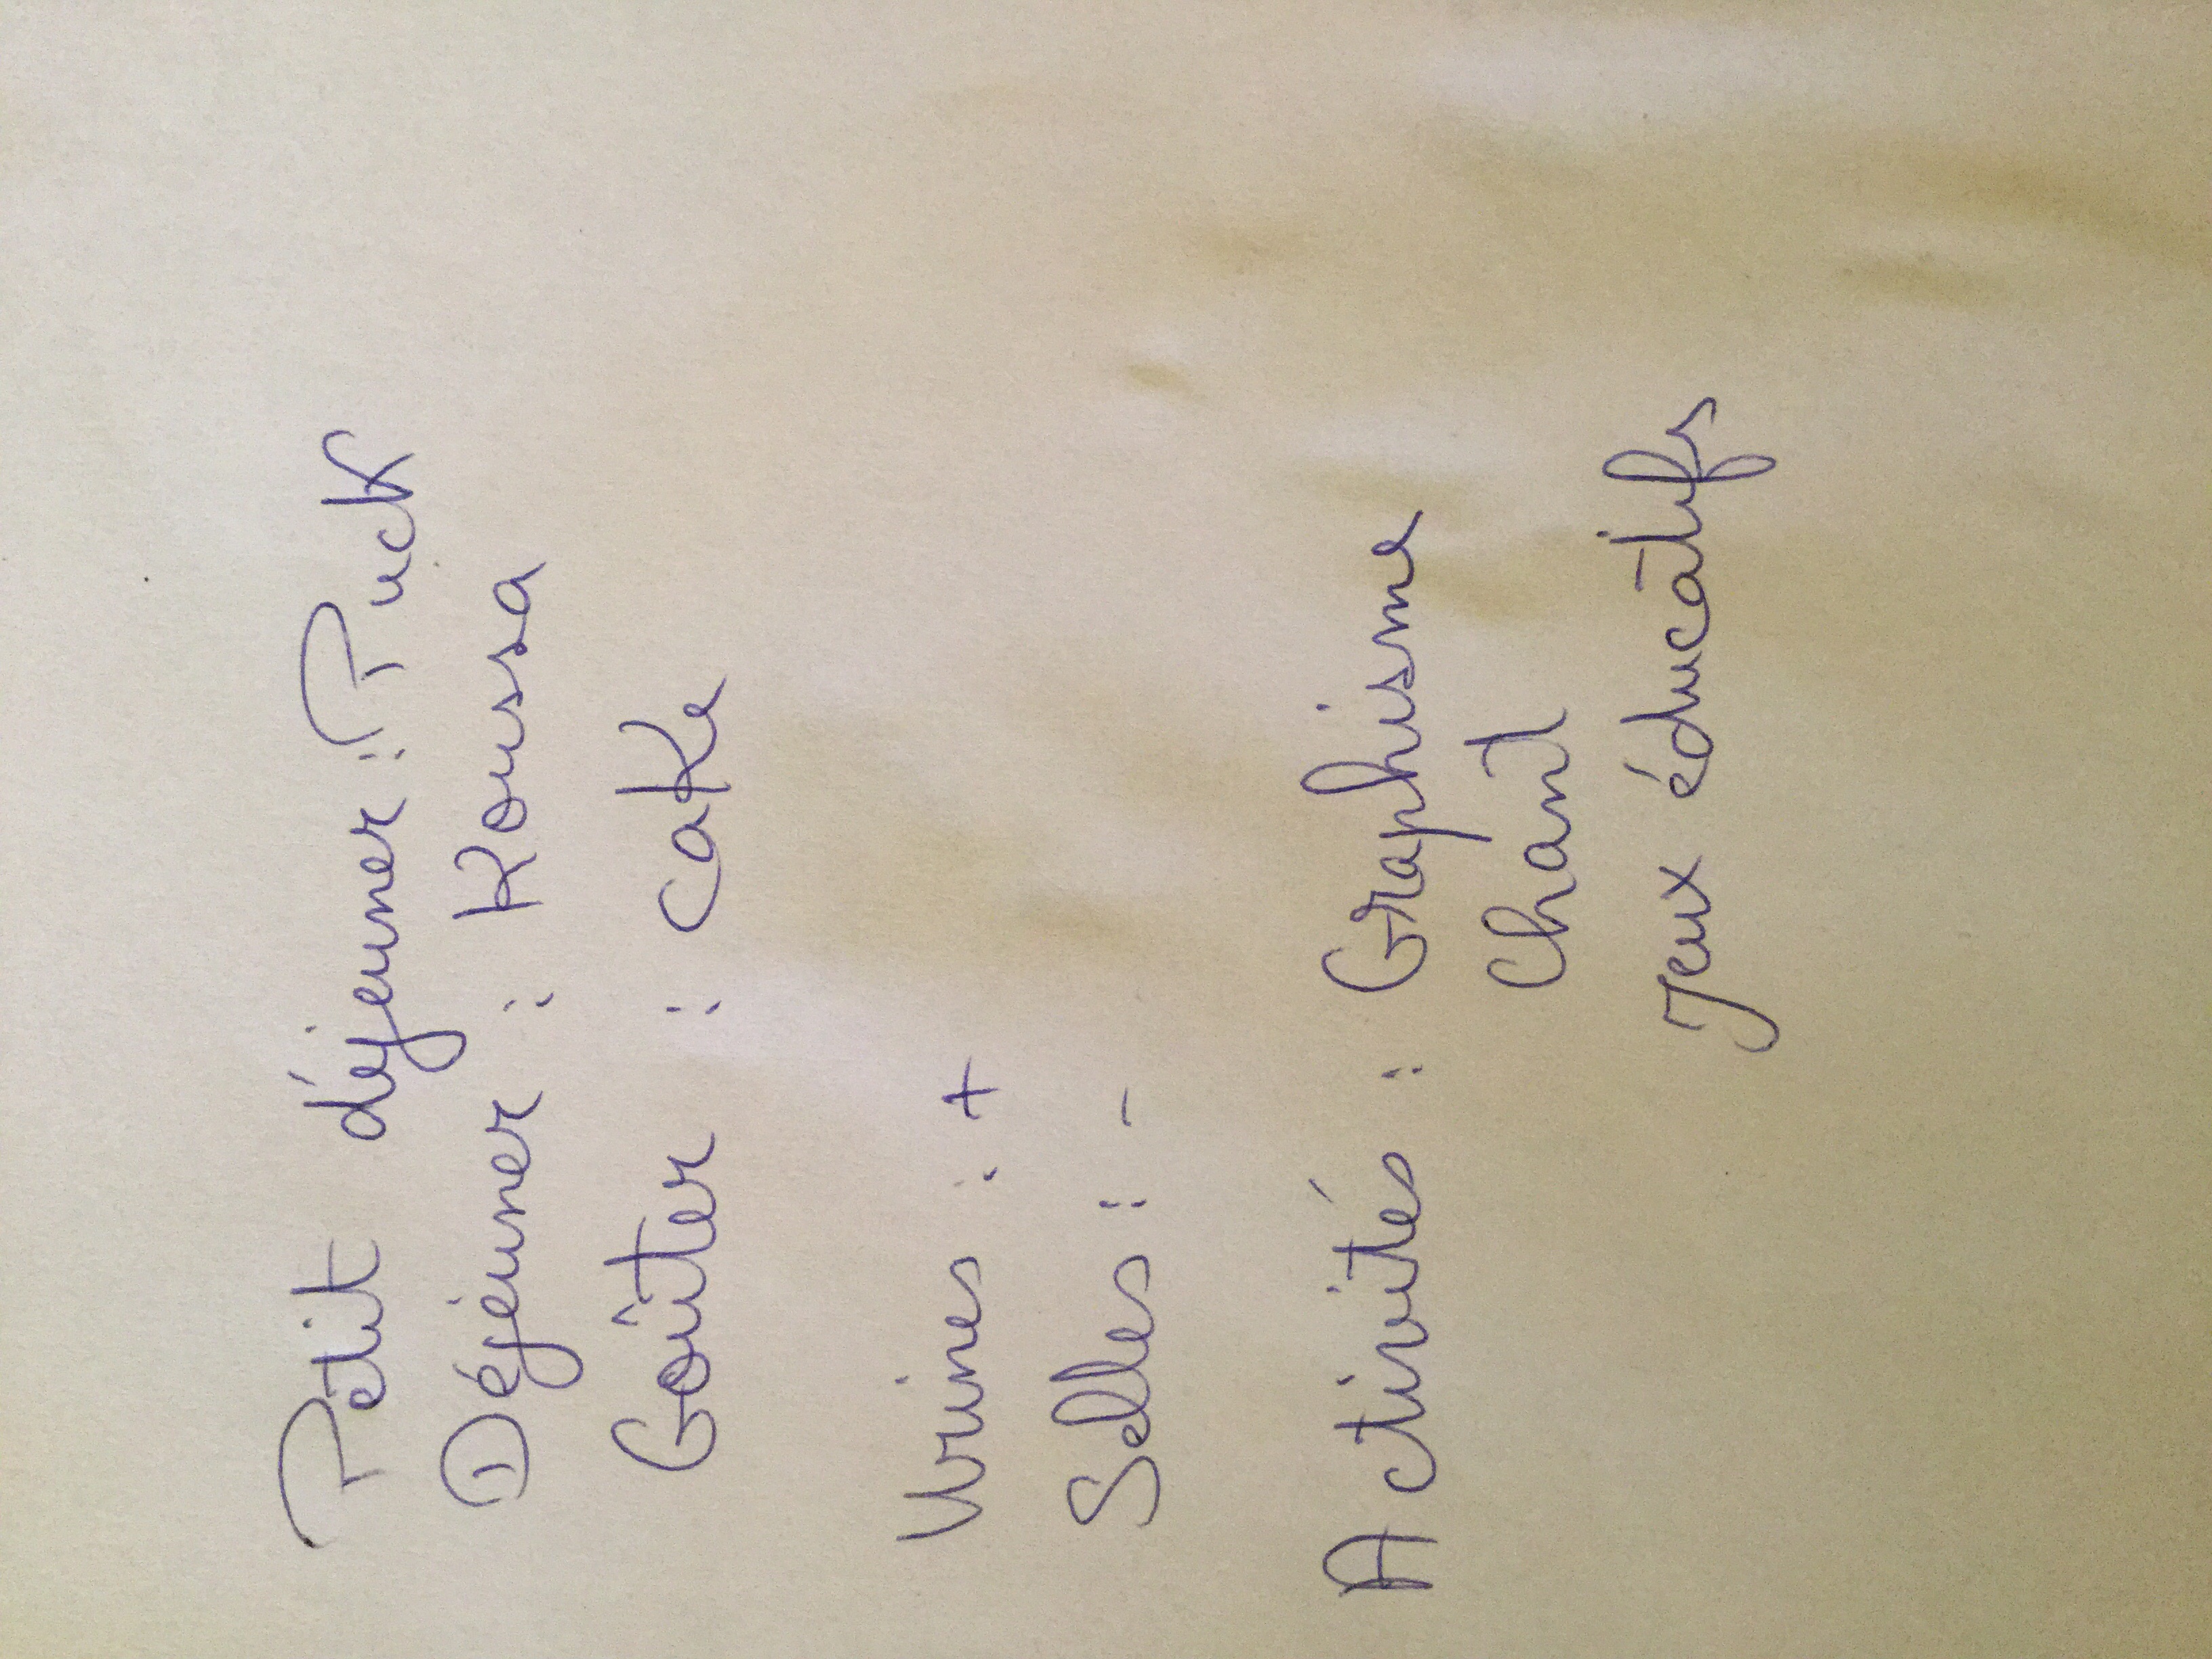 Petit déjeuner : Puck
Déjeuner : Koussa
Goûter : cake
Urines : +
Selles : -
Activités : Graphisme
Chant
Jeux éducatifs